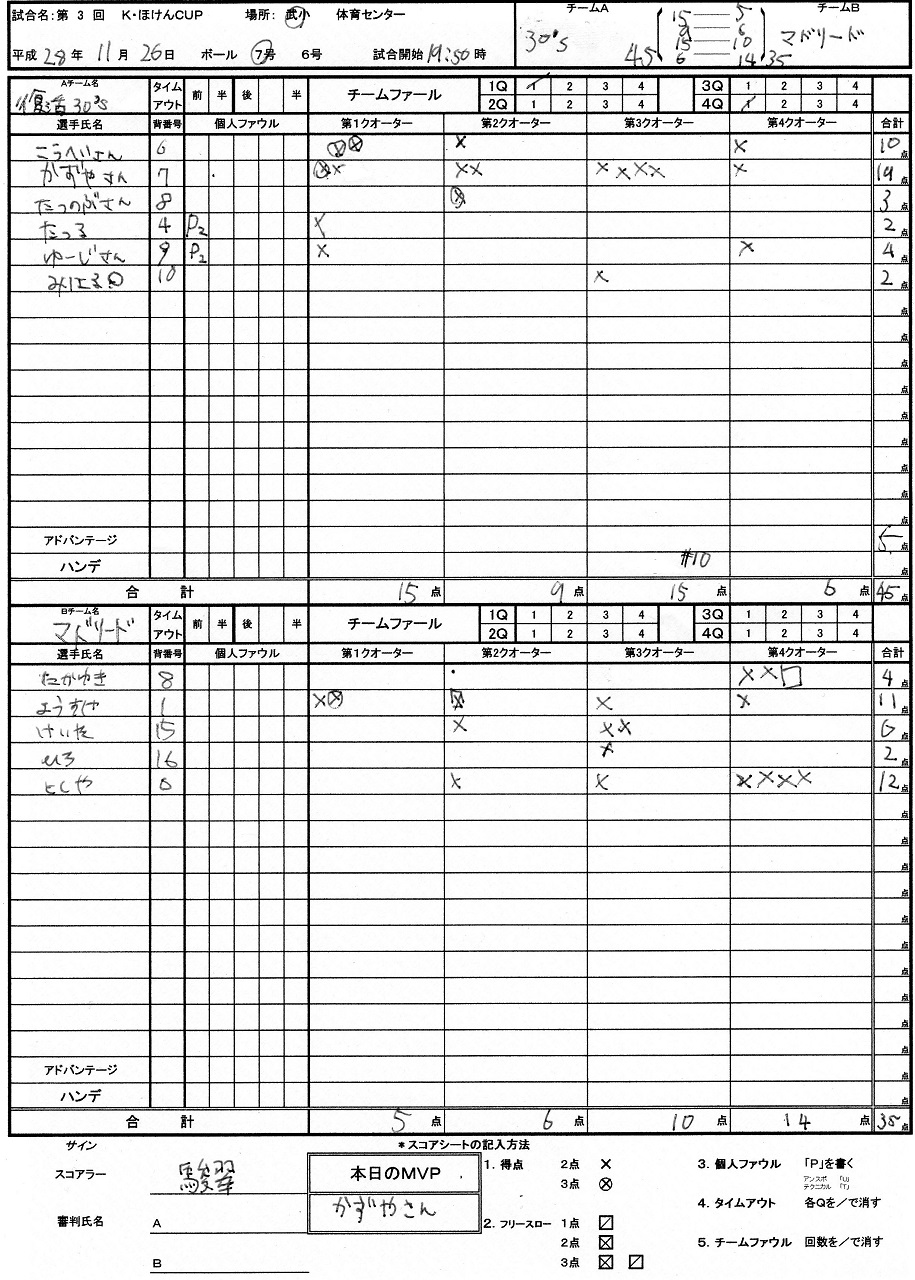 試合名:第 3 回 K・ほけんCUP 場所: 武小 体育センター
平成 28 年 11 月 26 日 ボール 7号 6号 試合開始 19:50 時
チームA チームB
30's 45 15 5 マドリード
9 6
15 10
6 14 35
Aチーム名 タイムアウト 前 半 後 半 チームファール 1Q 1 2 3 4 3Q 1 2 3 4
復活30's 2Q 1 2 3 4 4Q 1 2 3 4
選手氏名 背番号 個人ファウル 第1クオーター 第2クオーター 第3クオーター 第4クオーター 合計
こうへいさん 6 ⊗⊗ × × 10 点
かずやさん 7 ⊗× ×× ×××× × 19 点
たつのぶさん 8 ⊗ 3 点
たつる 4 P2 × 2 点
ゆーじさん 9 P2 × × 4 点
10 × 2 点
アドバンテージ 5 点
ハンデ #10 点
合 計 15 点 9 点 15 点 6 点 45 点
Bチーム名 タイムアウト 前 半 後 半 チームファール 1Q 1 2 3 4 3Q 1 2 3 4
マドリード 2Q 1 2 3 4 4Q 1 2 3 4
選手氏名 背番号 個人ファウル 第1クオーター 第2クオーター 第3クオーター 第4クオーター 合計
たかゆき 8 ××□ 4 点
ようすけ 1 ×⊗ ☒ × × 11 点
けいた 15 × ×× 6 点
ひろ 16 × 2 点
としや 0 × × ×××× 12 点
アドバンテージ 点
ハンデ 点
合 計 5 点 6 点 10 点 14 点 35 点
サイン
*スコアシートの記入方法
スコアラー
本日のMVP
かずやさん
審判氏名 A
B
1. 得点 2点 ×
3点 ⊗
2. フリースロー 1点 ⍁
2点 ☒
3点 ☒ ⍁
3. 個人ファウル 「P」を書く
アンスポ 「U」
テクニカル 「T」
4. タイムアウト 各Qを/で消す
5. チームファウル 回数を/で消す